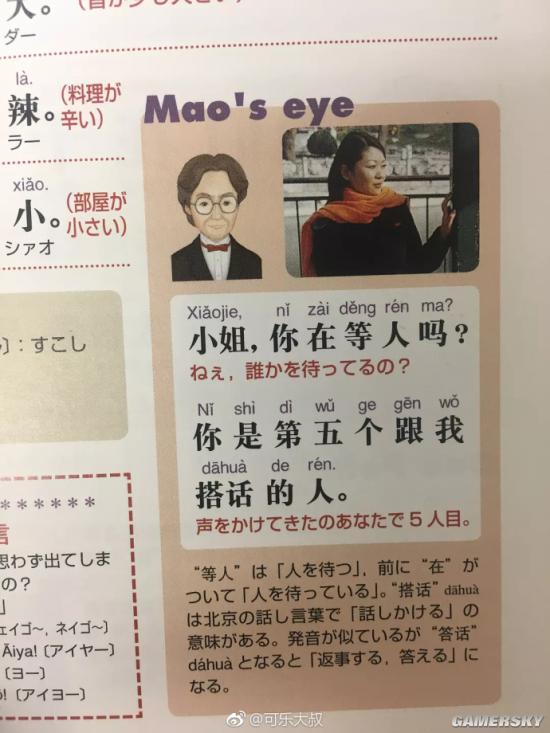 大。
ダー
là.
辣。(料理が
辛い)
ラー
xiǎo.
小。(部屋が
小さい)
シァオ
): すこし
******
言
思わず出てしま
の?
」
ェイゴ~, ネイゴ~)
Āiya! (アイヤー)
(ヨー)
ō! (アイヨー)
Mao's eye
Xiǎojie, nǐ zài děng rén ma?
小姐, 你在等人吗?
ねぇ, 誰かを待ってるの?
Nǐ shì dì wǔ ge gēn wǒ
你是第五个跟我
dāhuà de rén.
搭话的人。
声をかけてきたのあなたで5人目。
“等人”は「人を待つ」, 前に“在”が
ついて「人を待っている」。“搭话”dāhuà
は北京の話し言葉で「話しかける」の
意味がある。発音が似ているが“答话”
dáhuà となると「返事する, 答える」に
なる。
@可乐大叔
GAMERSKY